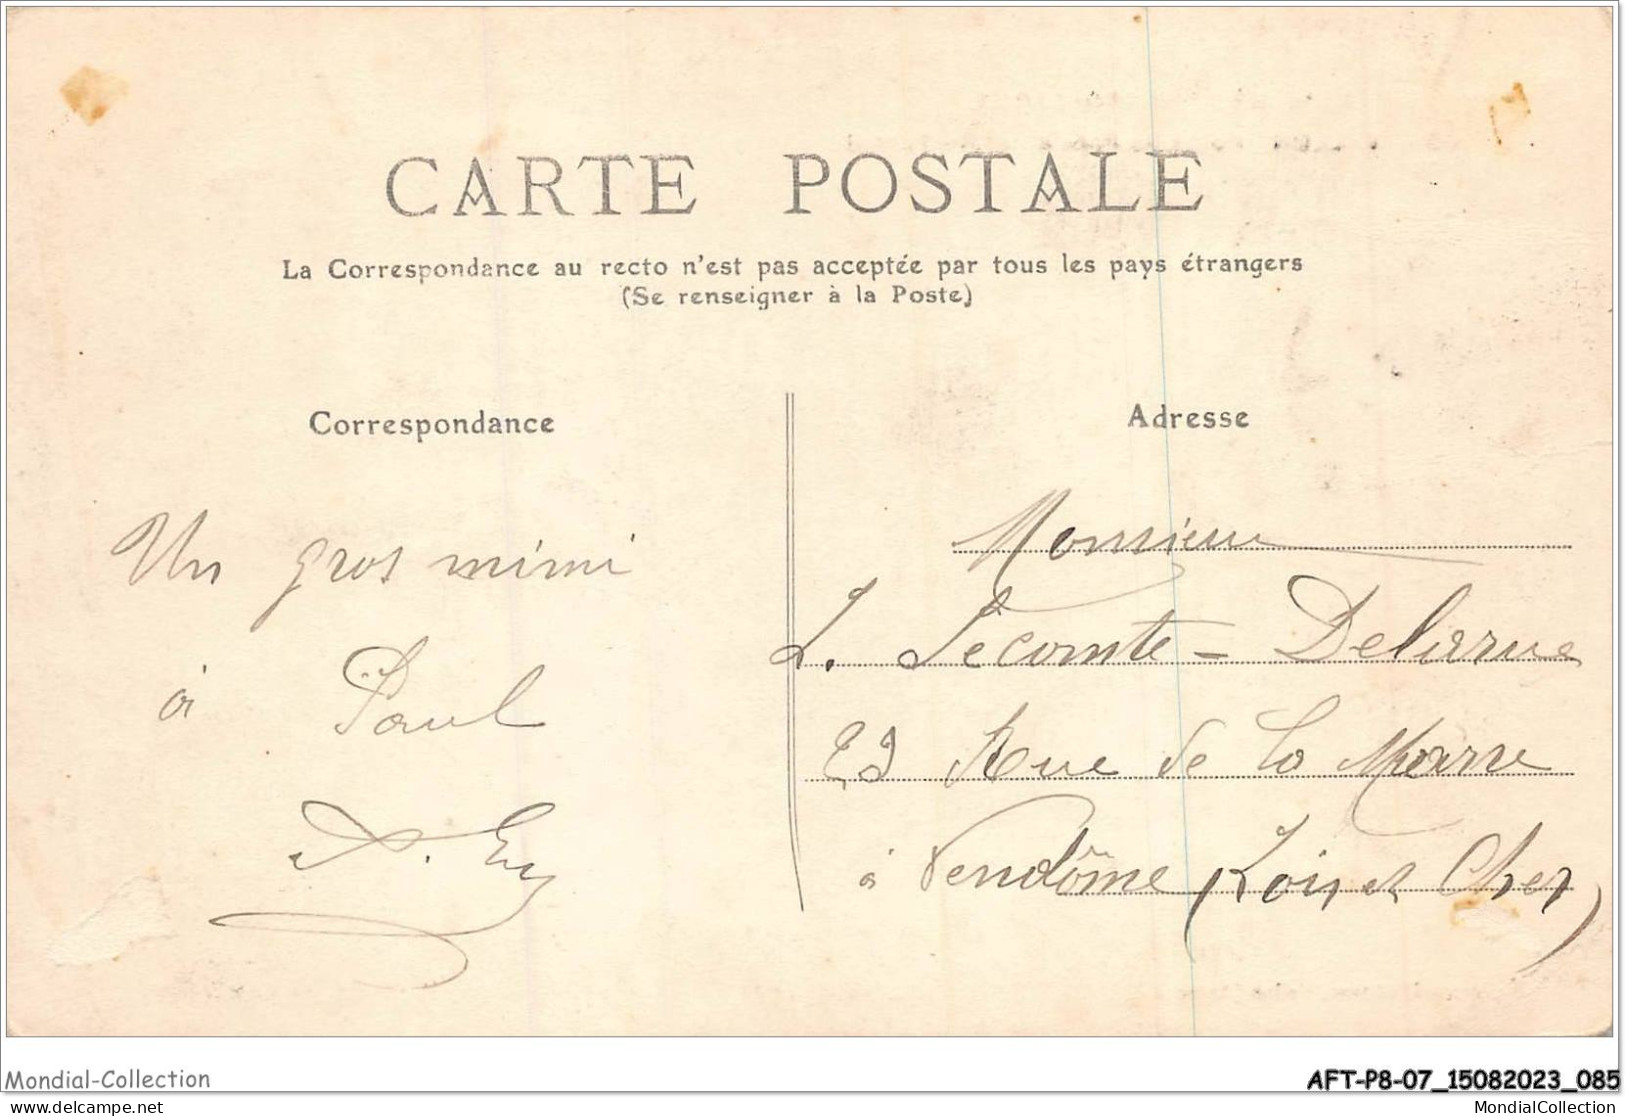 CARTE POSTALE
La Correspondance au recto n'est pas acceptée par tous les pays étrangers
(Se renseigner à la Poste)
Correspondance
Un gros mimi
à Paul
Adresse
Monsieur
L. Lecomte-Delarue
23 Rue de la Marre
à Vendôme (Loir et Cher)
Mondial-Collection
AFT-P8-07_15082023_085
delcampe.net
MondialCollection